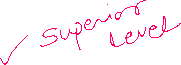 ✓ superior
level